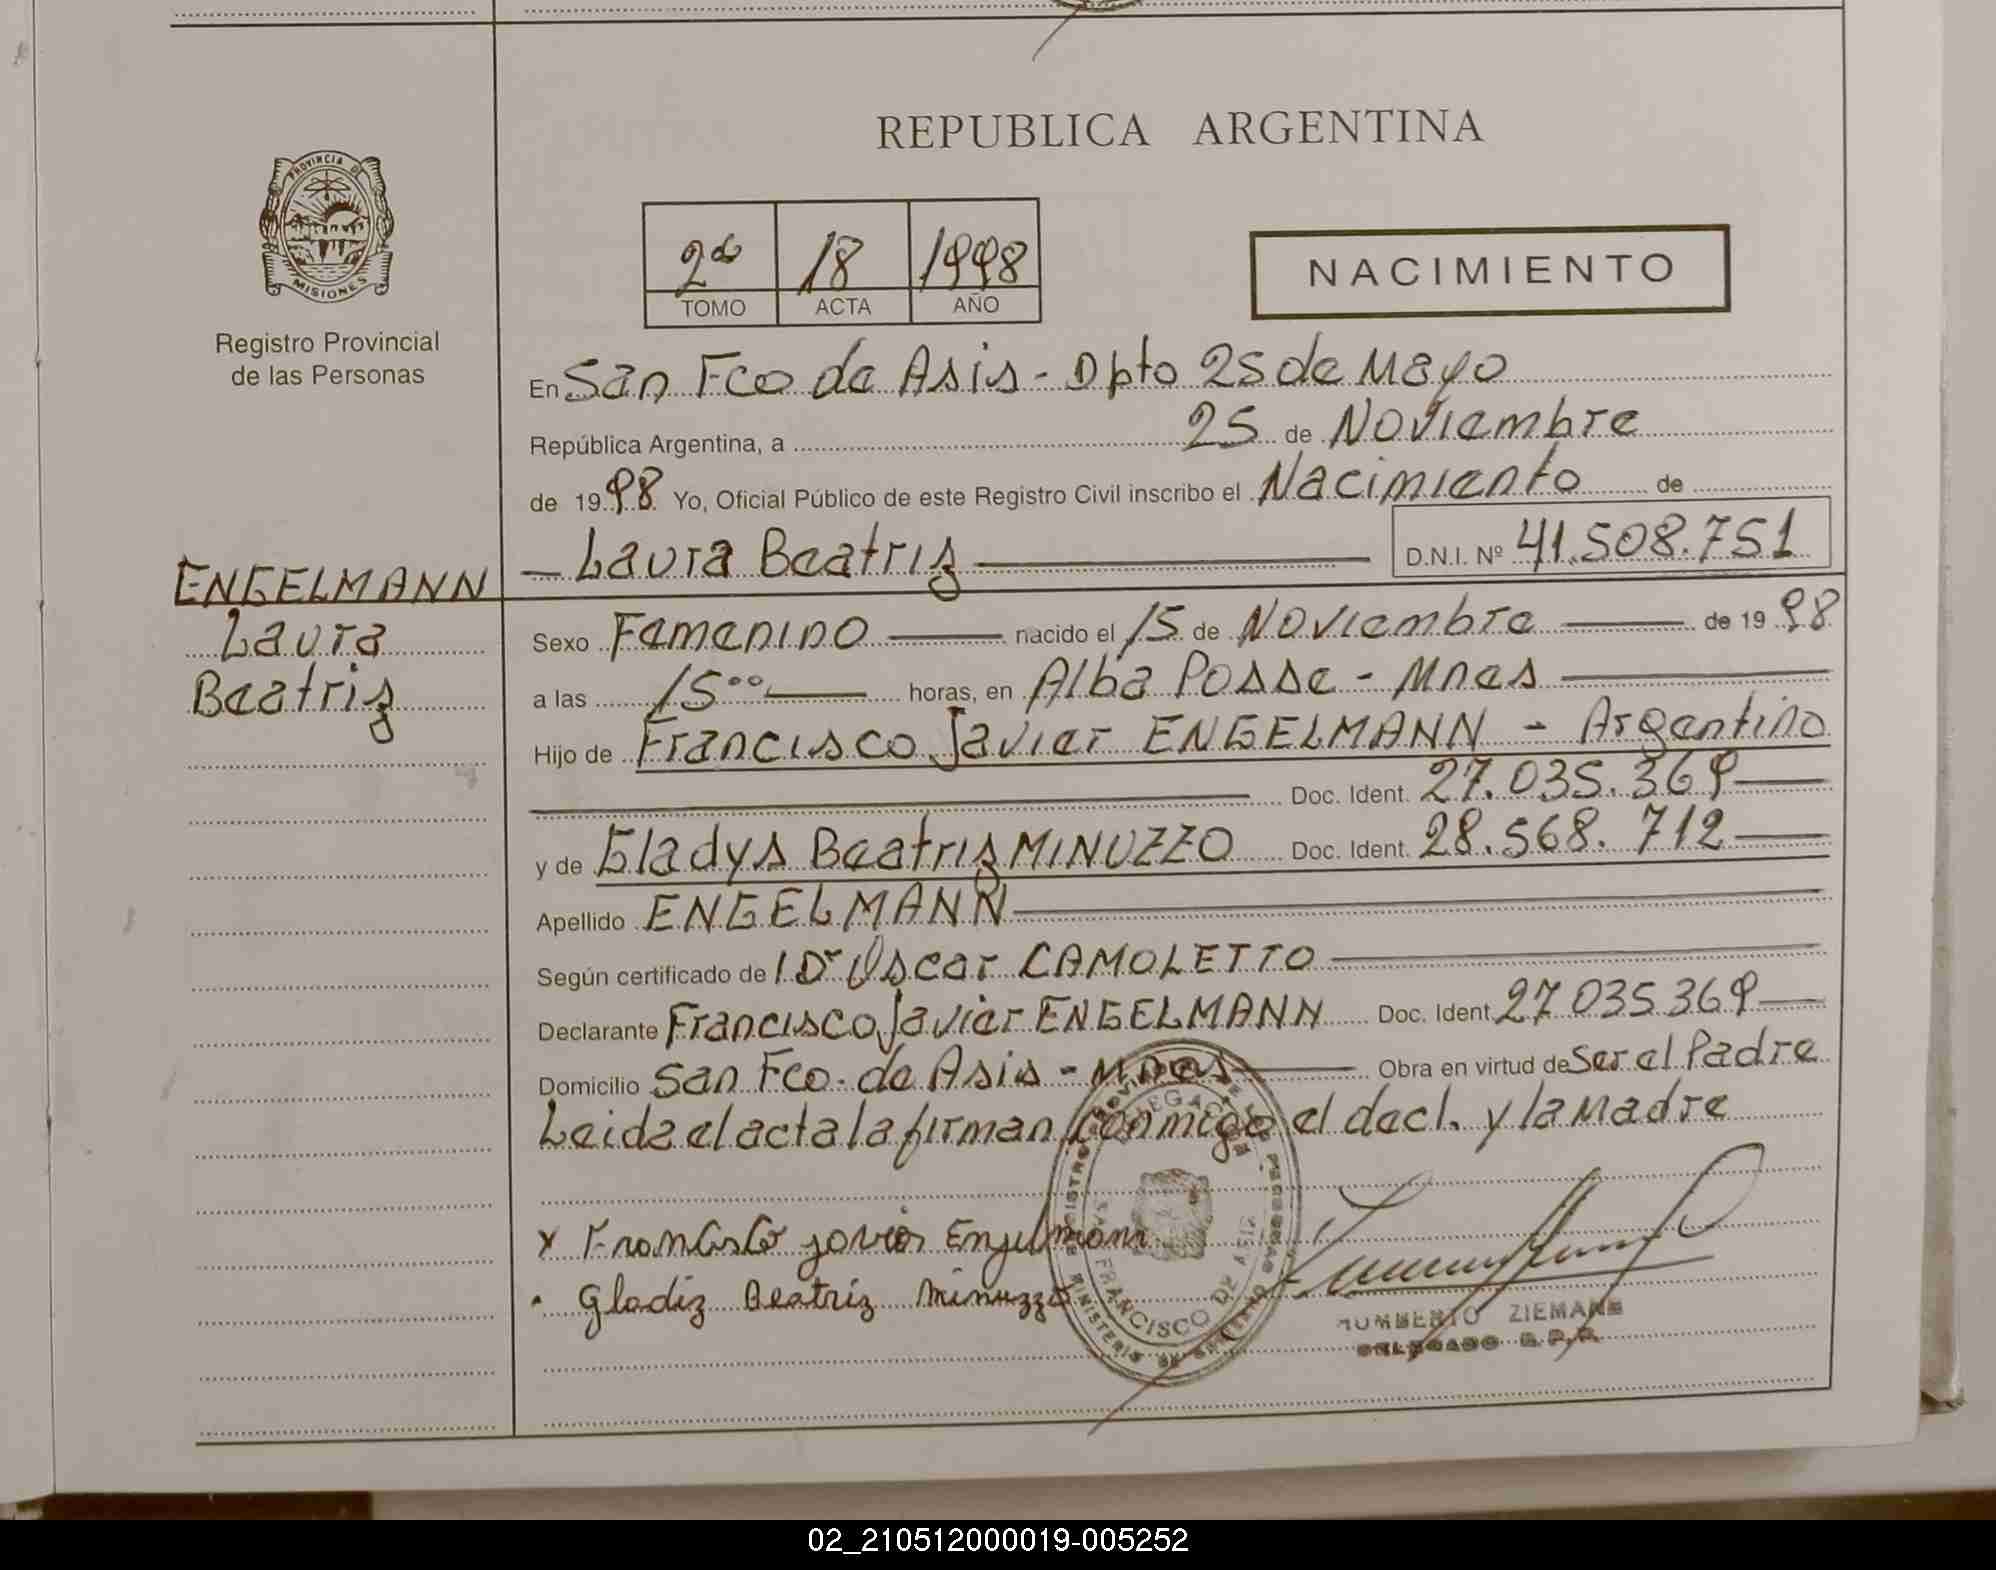 REPUBLICA ARGENTINA
PROVINCIA DE
MISIONES
Registro Provincial
de las Personas
2do 18 1998
TOMO ACTA AÑO
NACIMIENTO
En San Fco de Asis - Dpto 25 de Mayo
República Argentina, a 25 de Noviembre
de 1998 Yo, Oficial Público de este Registro Civil inscribo el Nacimiento de
Laura Beatriz D.N.I. Nº 41.508.751
ENGELMANN
Laura
Beatriz
Sexo Femenino nacido el 15 de Noviembre de 1998
a las 15°° horas, en Alba Posse - Mnes
Hijo de Francisco Javier ENGELMANN - Argentino
Doc. Ident. 27.035.369
y de Gladys Beatriz MINUZZO Doc. Ident. 28.568.712
Apellido ENGELMANN
Según certificado de Dr Oscar CAMOLETTO
Declarante Francisco Javier ENGELMANN Doc. Ident. 27.035.369
Domicilio San Fco. de Asis - Mnes Obra en virtud de Ser el Padre
Leida el acta la firman conmigo el decl. y la Madre
x Francisco Javier Engelmann
Gladiz Beatriz Minuzzo
SAN FRANCISCO DE ASIS
HUMBERTO ZIEMANN
DELEGADO R.P.P.
02_210512000019-005252